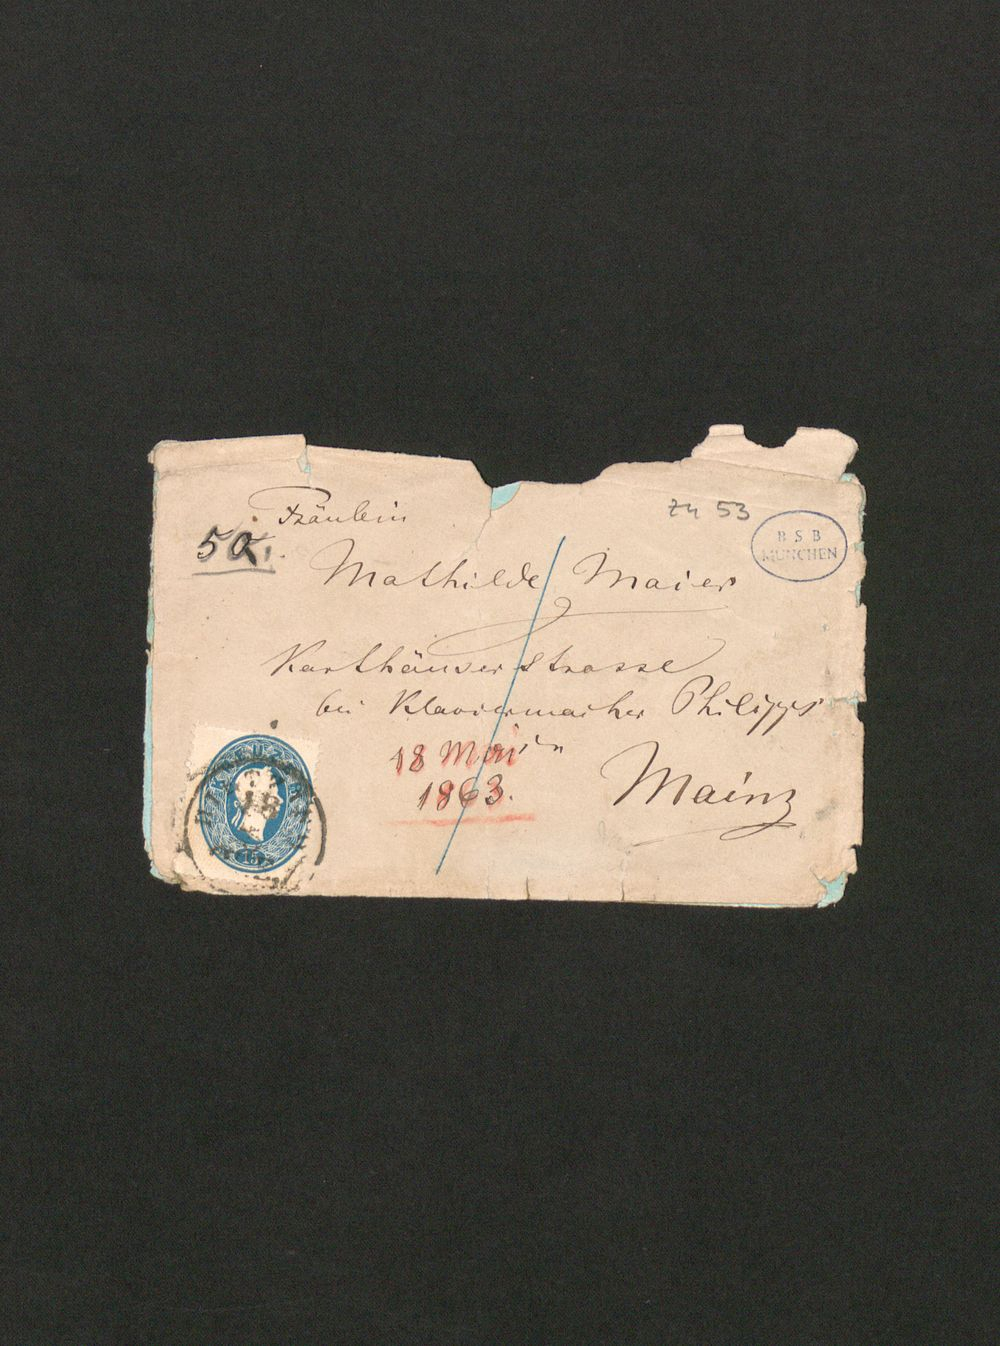 Fräulein
zu 53
50.
B S B
MÜNCHEN
Mathilde Maier
Karthäuser Strasse
bei Klaviermacher Philipps
18 Mai
in
1863.
Mainz
KREUZER
15
18